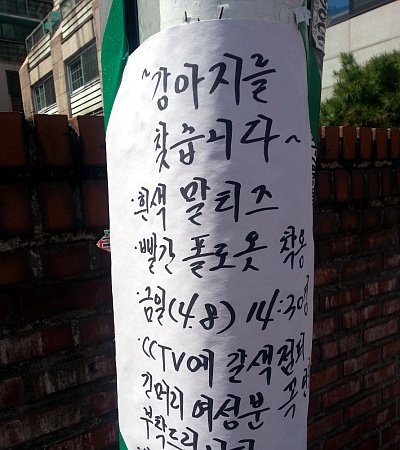 ~강아지를
찾습니다~
·흰색 말티즈
·빨간 폴로옷 착용
·금일(4.8) 14:30경
·CCTV에 갈색점퍼,
긴머리 여성분 꼭
부탁드립니다